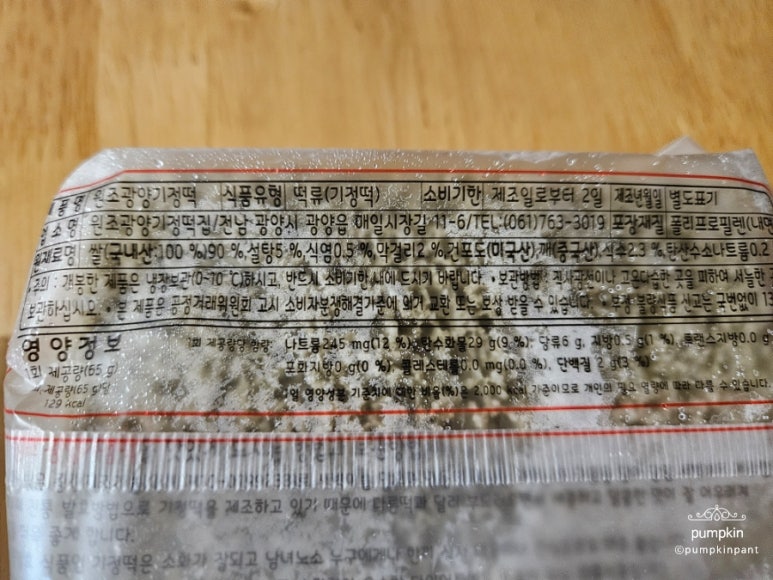 품명 원조광양기정떡 식품유형 떡류(기정떡) 소비기한 제조일로부터 2일 제조년월일 별도표기
업소명 원조광양기정떡집/전남 광양시 광양읍 매일시장길 11-6/TEL:(061)763-3019 포장재질 폴리프로필렌(내면
원재료명 쌀(국내산:100 %)90 %,설탕5 %,식염0.5 %,막걸리2 %,건포도(미국산),깨(중국산),식소2.3 %,탄산수소나트륨0.2
주의 : 개봉한 제품은 냉장보관(0-70 ℃)하시고, 반드시 소비기한 내에 드시기 바랍니다. •보관방법: 직사광선이나 고온다습한 곳을 피하여 서늘한
보관하십시오. • 본 제품은 공정거래위원회 고시 소비자분쟁해결기준에 의거 교환 또는 보상 받을 수 있습니다. • 부정·불량식품 신고는 국번없이 13
영양정보 1회 제공량당 함량: 나트륨245 mg(12 %), 탄수화물29 g(9 %), 당류6 g, 지방0.5 g(1 %), 트랜스지방0.0 g
1회 제공량(65 g) 포화지방0 g(0 %), 콜레스테롤0.0 mg(0.0 %), 단백질 2 g(3 %)
1회 제공량(65 g)당 1일 영양성분 기준치에 대한 비율(%)은 2,000 kcal 기준이므로 개인의 필요 열량에 따라 다를 수 있습니다.
129 kcal
발효방법으로 기정떡을 제조하고 있기 때문에 다른떡과 달리
좋게 합니다.
식품인 기정떡은 소화가 잘되고 남녀노소 누구에게나
pumpkin
©pumpkinpant